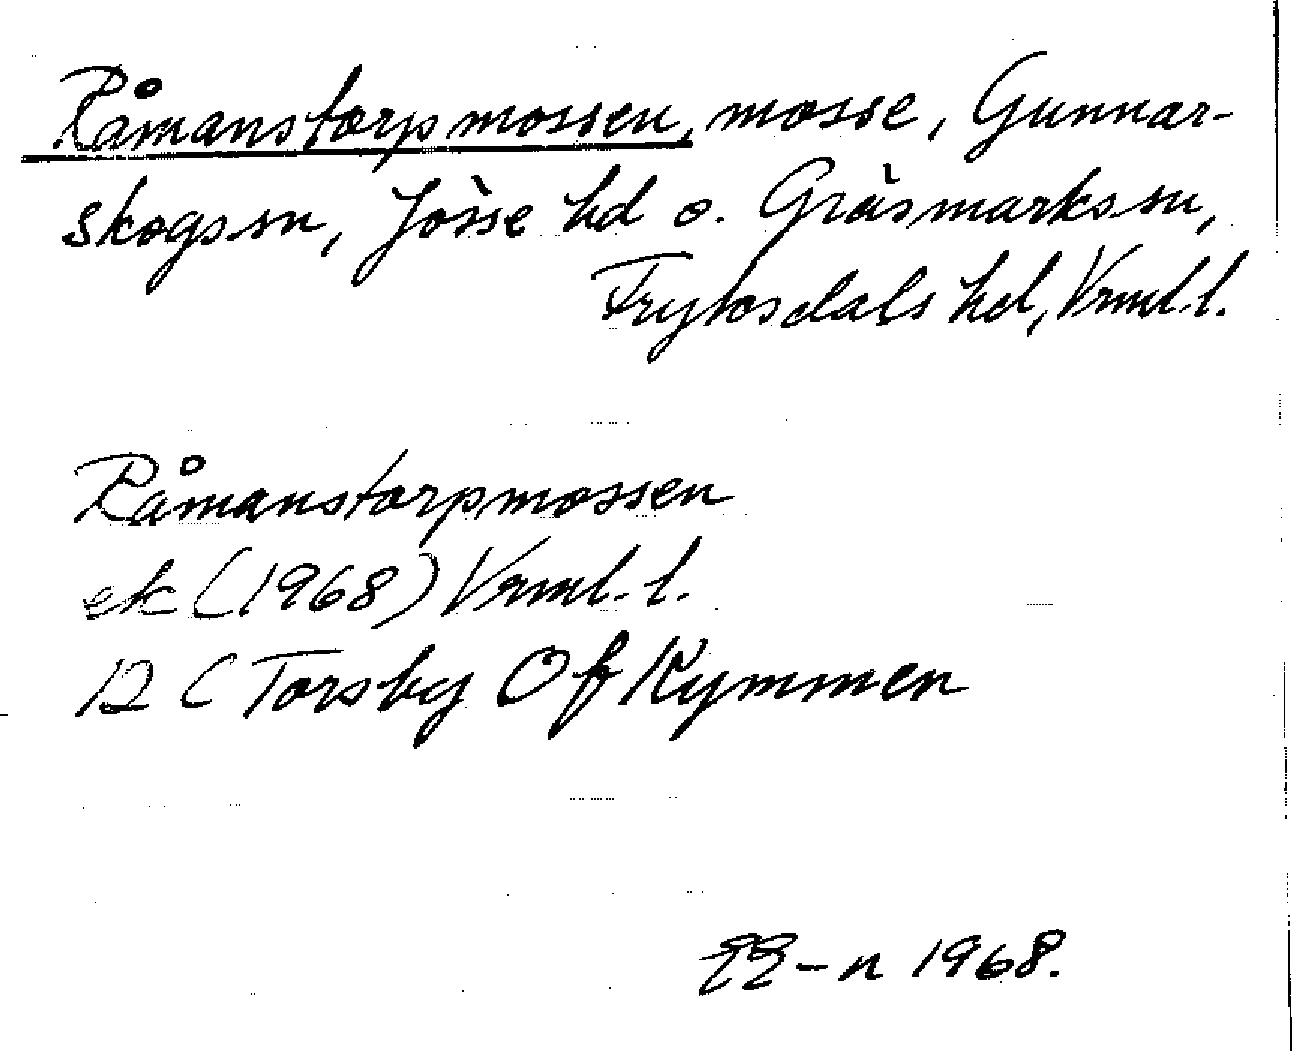 Råmanstorpmossen, mosse, Gunnar-
skogs sn, Jösse hd o. Gräsmarks sn,
Fryksdals hd, Vrml. l.
Råmanstorpmossen
ek (1968) Vrml. l.
12 C Torsby 0 f Kymmen
-n 1968.